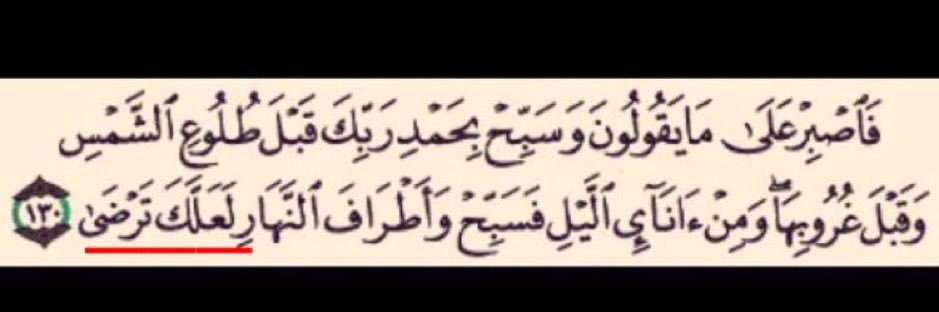 فَٱصۡبِرۡ عَلَىٰ مَا يَقُولُونَ وَسَبِّحۡ بِحَمۡدِ رَبِّكَ قَبۡلَ طُلُوعِ ٱلشَّمۡسِ
وَقَبۡلَ غُرُوبِهَاۖ وَمِنۡ ءَانَآيِٕ ٱلَّيۡلِ فَسَبِّحۡ وَأَطۡرَافَ ٱلنَّهَارِ لَعَلَّكَ تَرۡضَىٰ ١٣٠